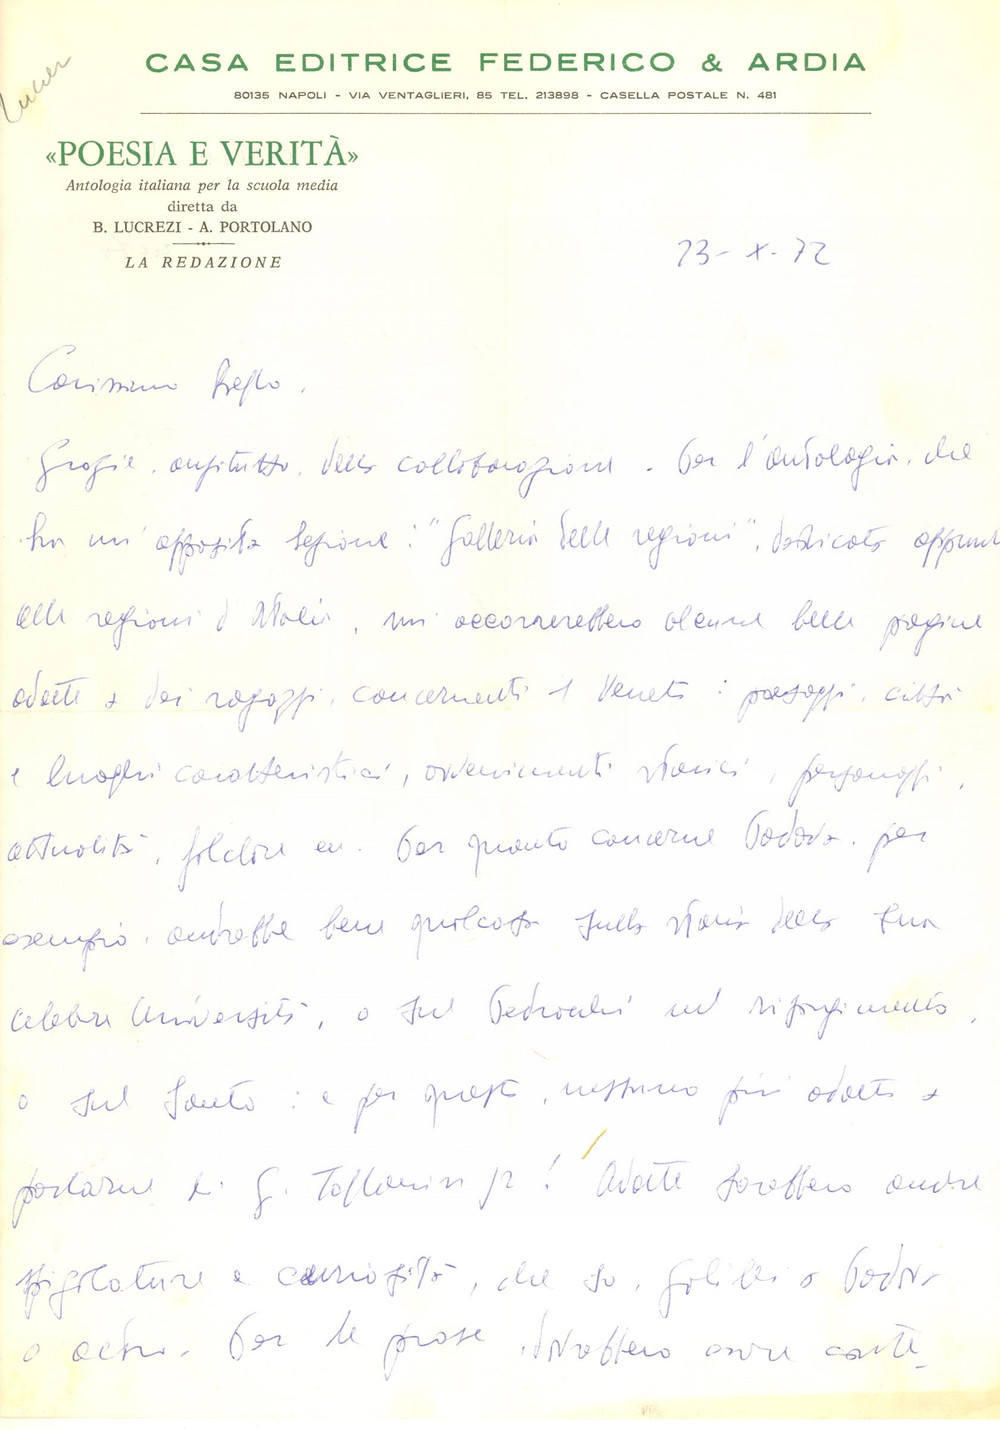 Lucrez
CASA EDITRICE FEDERICO & ARDIA
80135 NAPOLI - VIA VENTAGLIERI, 85 TEL. 213898 - CASELLA POSTALE N. 481
«POESIA E VERITÀ»
Antologia italiana per la scuola media
diretta da
B. LUCREZI - A. PORTOLANO
LA REDAZIONE
23-X-72
Carissimo
Grazie, anzitutto, della collaborazione. Per l'antologia, che
ha un'apposita sezione: "Galleria delle regioni", dedicata appunto
alle regioni d'Italia, mi occorrerebbero alcune belle pagine
adatte a dei ragazzi, concernenti il Veneto: paesaggi, città
e luoghi caratteristici, avvenimenti storici, personaggi,
attualità, folclore ecc. Per quanto concerne Padova, per
esempio, andrebbe bene qualcosa sulla storia della sua
celebre Università, o sul Pedrocchi nel risorgimento,
o sul Santo: e per questo, nessuno più adatto a
parlarne di G. Toffanin jr! Adatte sarebbero anche
spigolature e curiosità, che so, Galilei a Padova
o altro. Per le prose, dovrebbero essere conte-